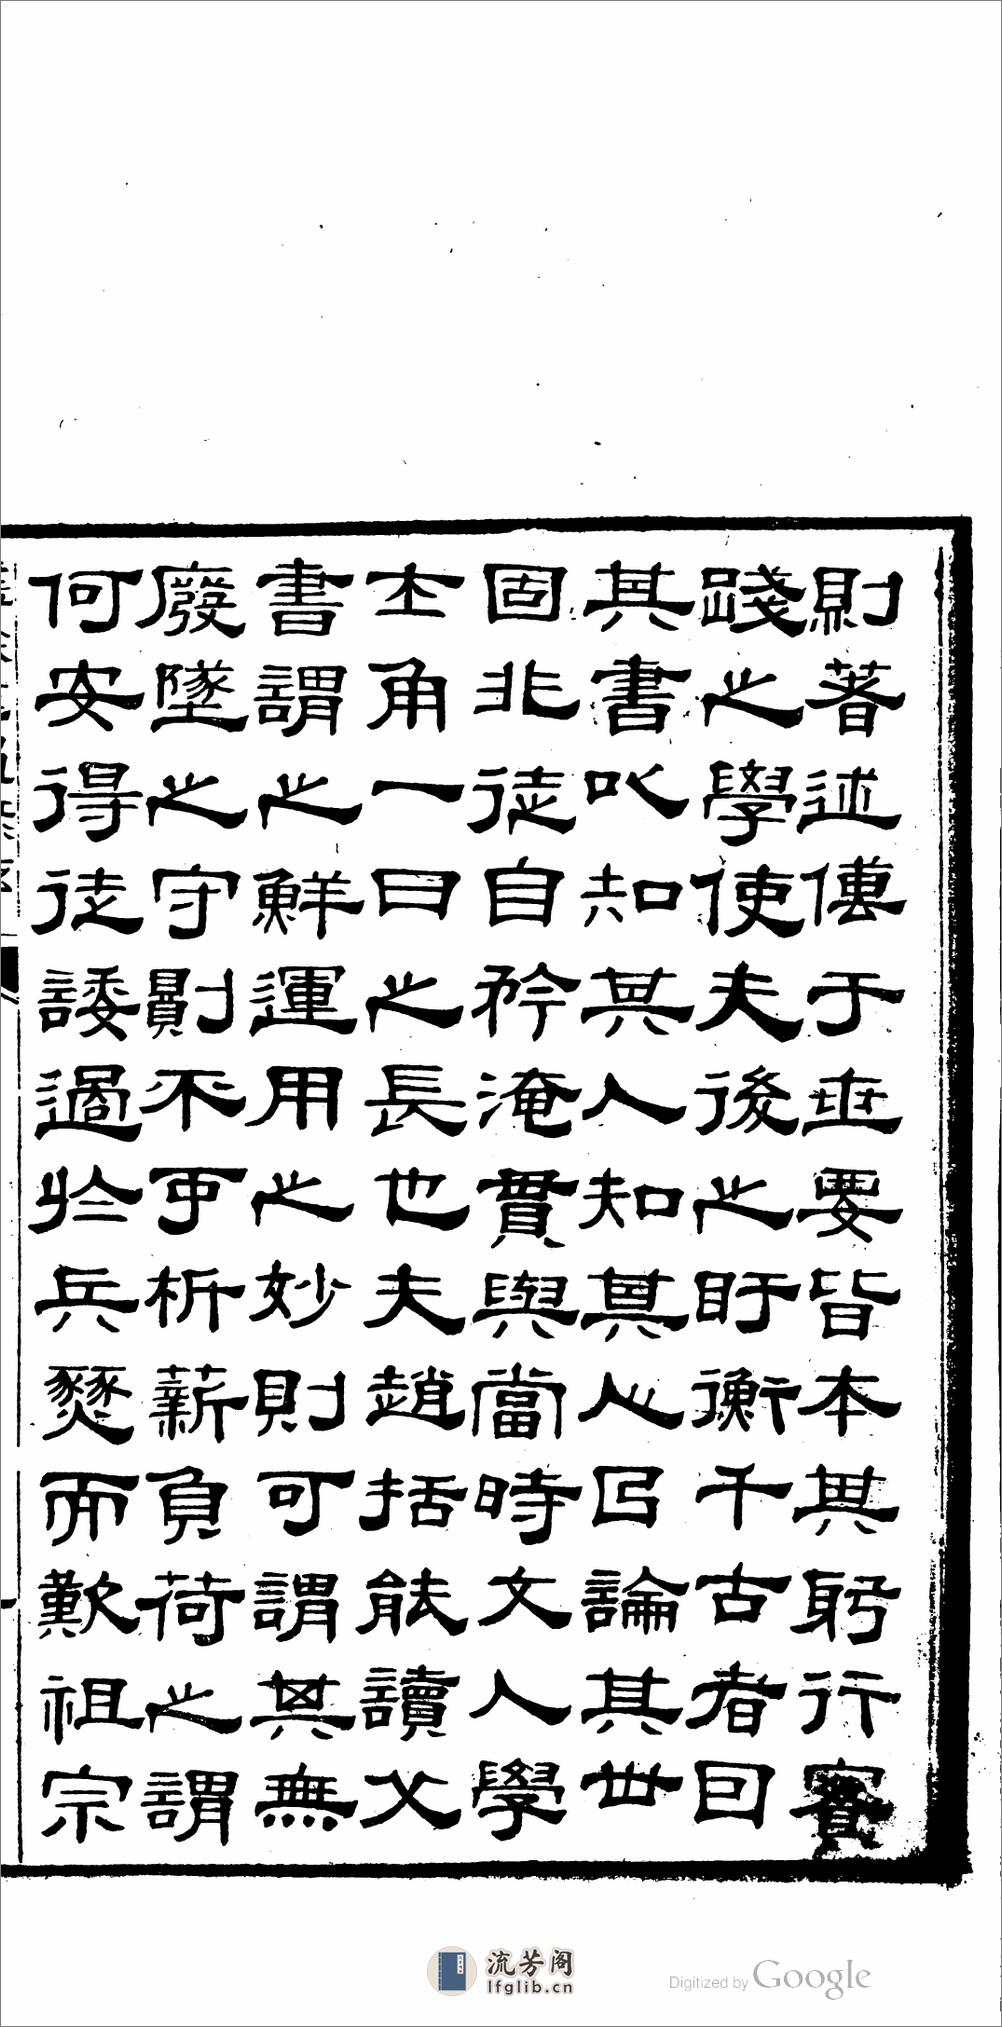 則著述傳于世要皆本其躬行實
踐之學使夫後之盱衡千古者因
其書以知其人知其心以論其世
固非徒自矜淹貫與當時文人學
士角一日之長也夫趙括能讀父
書謂之鮮運用之妙則可謂其無
廢墜之守則不可析薪負荷之謂
何安得徒諉過於兵燹而歎祖宗
流芳阁
lfglib.cn
Digitized by Google